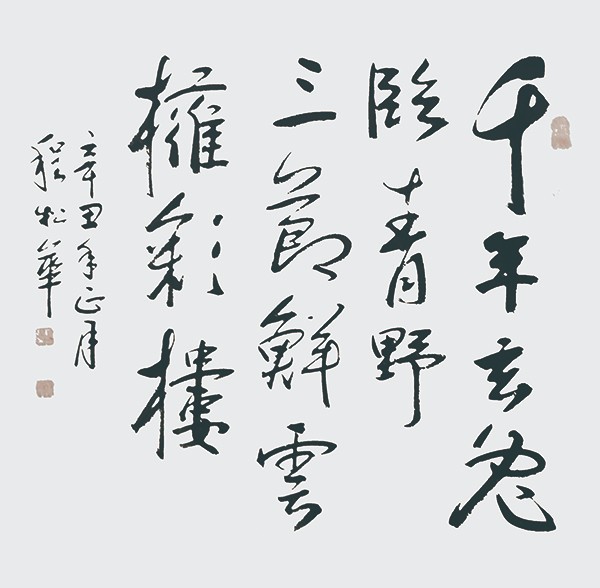 千年玄兔
臨青野
三節鮮雲
擁彩樓
辛丑年正月
程松華